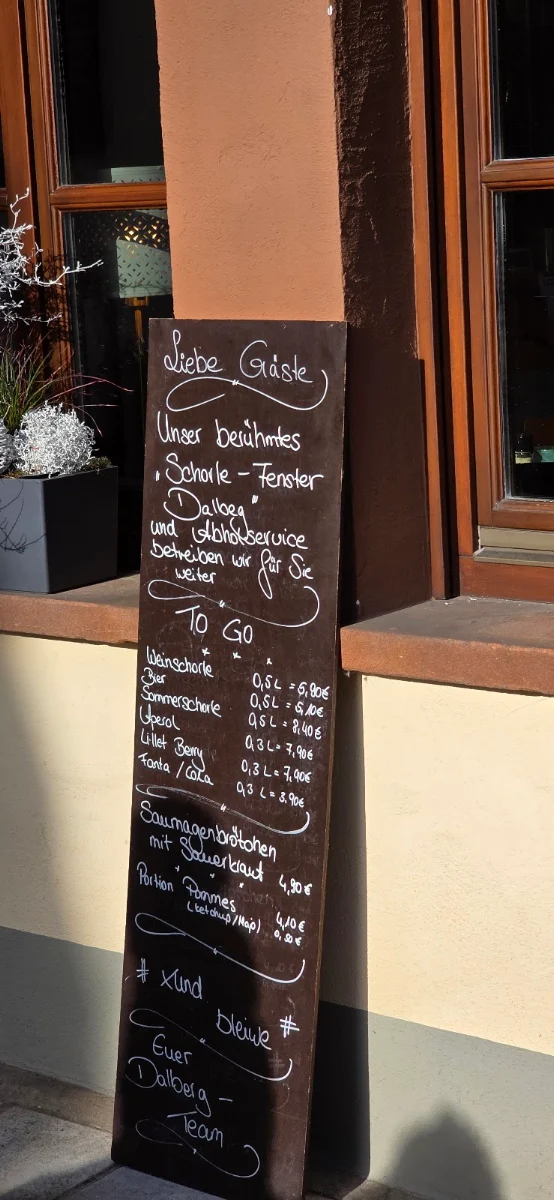 Liebe Gäste
Unser berühmtes
„Schorle - Fenster
Dalbeg"
und Abholservice
betreiben wir für Sie
weiter
TO GO
Weinschorle 0,5 L = 6,90€
Bier 0,5 L = 5,10€
Sommerschorle 0,5 L = 8,40€
Aperol 0,3 L = 7,90€
Lillet Berry 0,3 L = 7,90€
Fanta / Cola 0,3 L = 3,90€
Saumagenbrötchen
mit Sauerkraut 4,90€
Portion Pommes 4,10€
(Ketchup/Majo) 0,50€
# xund
bleiwe #
Euer
Dalberg -
Team